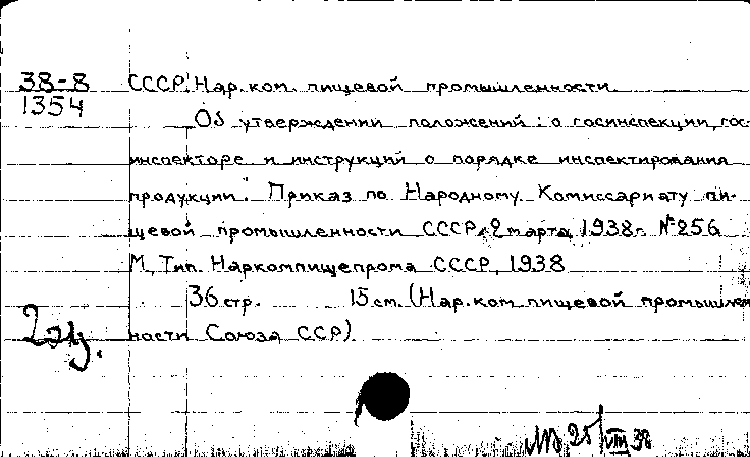 38-8
1354
СССР. Нар. ком. пищевой промышленности.
Об утверждении положений: о госинспекции, гос-
инспекторе и инструкций о порядке инспектирования
продукции. Приказ по Народному Комиссариату пи-
щевой промышленности СССР, 2 марта 1938 г. № 256
М, Тип. Наркомпищепрома СССР, 1938
36 стр. 15 см. (Нар. ком пищевой промышлен
ности Союза ССР)
2 экз.
25/VIII 38